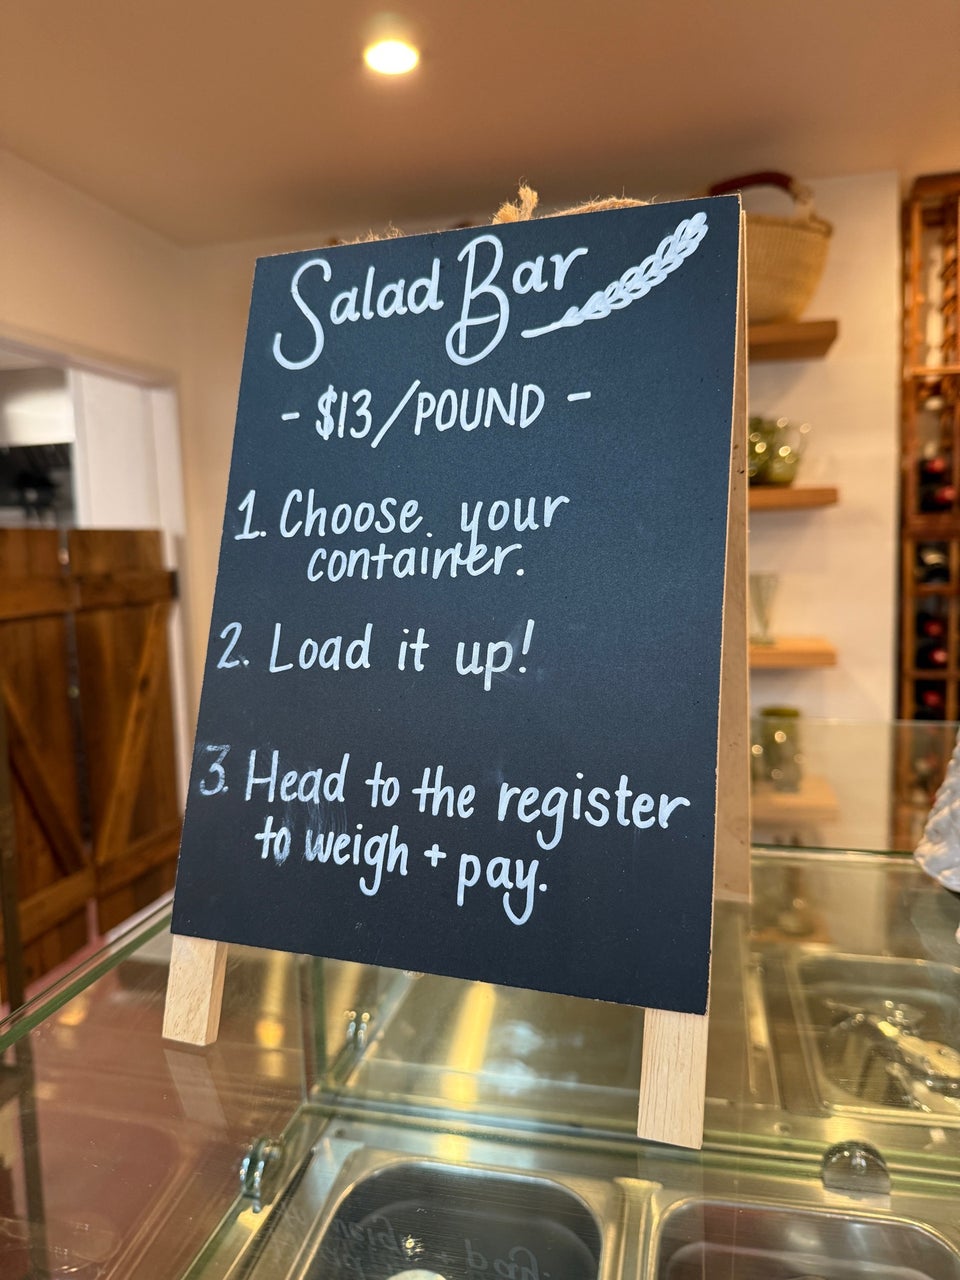 Salad Bar
- $13/POUND -
1. Choose your
container.
2. Load it up!
3. Head to the register
to weigh + pay.